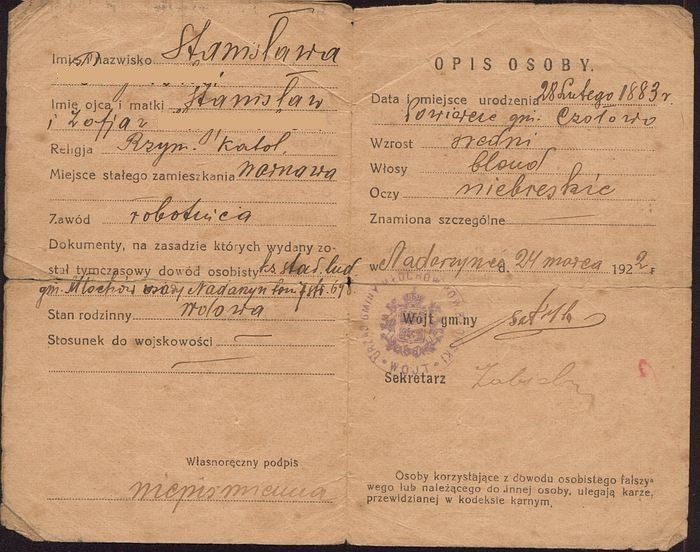 Imię i Nazwisko Stanisława
Imię ojca i matki Stanisław
i Zofja
Religja Rzym. Katol.
Miejsce stałego zamieszkania Warszawa
Zawód robotnica
Dokumenty, na zasadzie których wydany zo-
stał tymczasowy dowód osobisty ks. stał. lud.
gm. Młochów Nadarzyn
Stan rodzinny wdowa
Stosunek do wojskowości —
Własnoręczny podpis
niepiśmienna
OPIS OSOBY.
Data i miejsce urodzenia 28 Lutego 1883 r.
gm. Czołowo
Wzrost średni
Włosy blond
Oczy niebieskie
Znamiona szczególne —
w Nadarzynie d. 24 marca 1922 r.
Wójt gminy
URZĄD GMINY MŁOCHÓW
WÓJT
Sekretarz
Osoby korzystające z dowodu osobistego fałszy-
wego lub należącego do innej osoby, ulegają karze,
przewidzianej w kodeksie karnym,